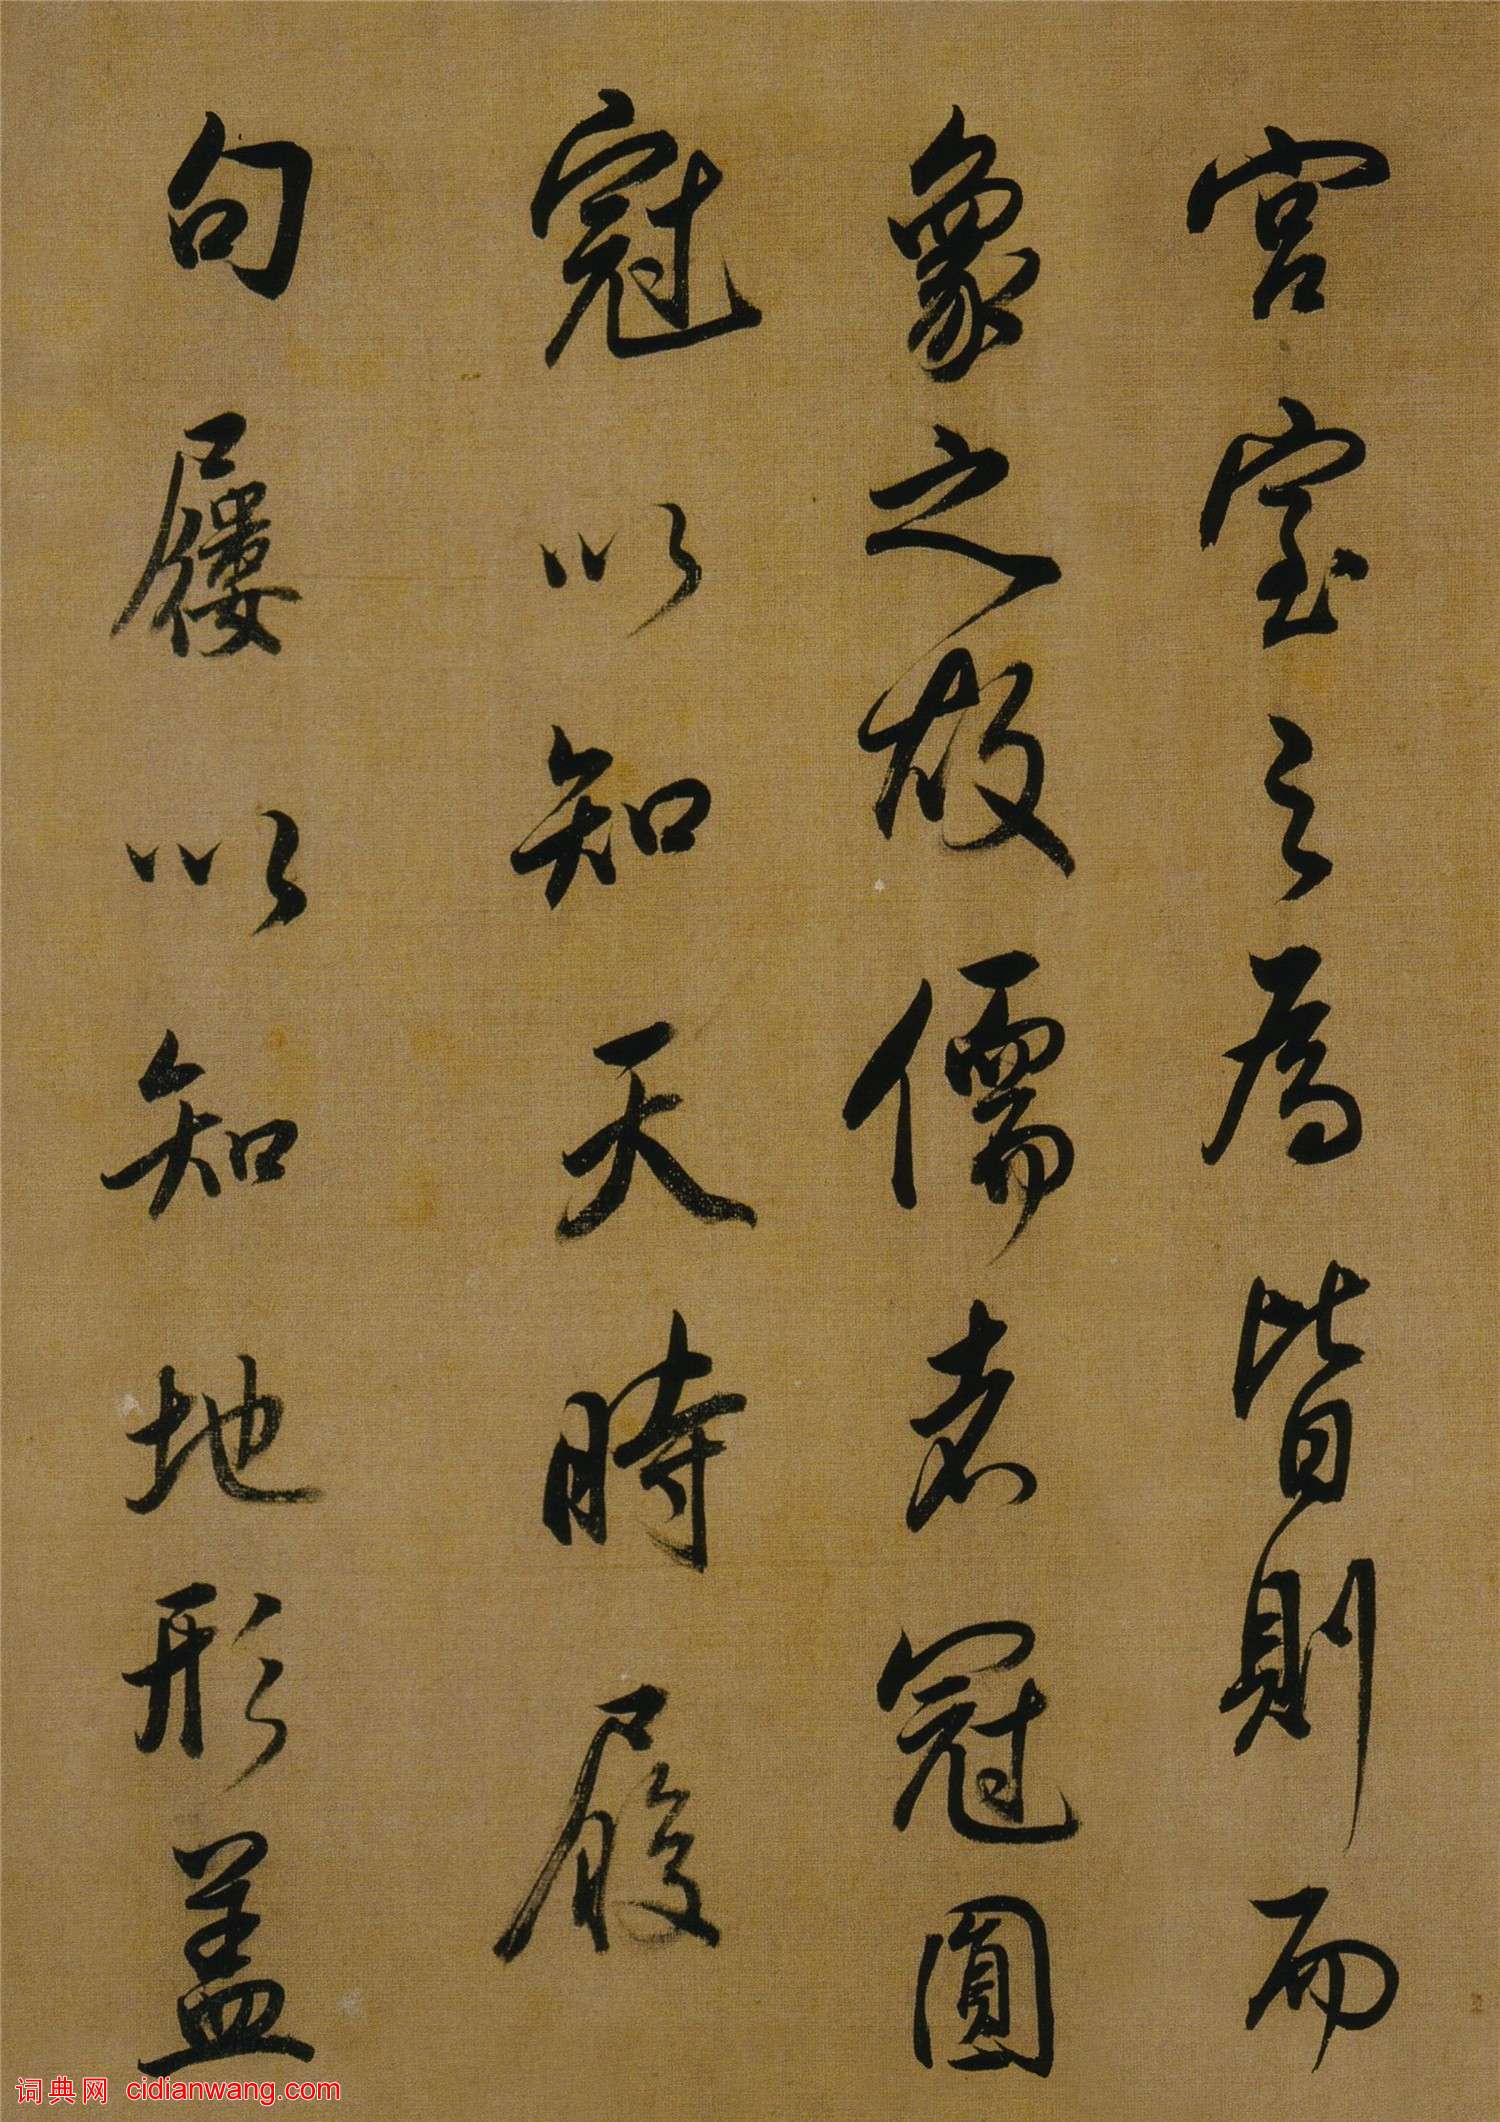 宫室之为皆則而
象之故儒者冠圓
冠以知天時履
句屨以知地形盖
词典网 cidianwang.com